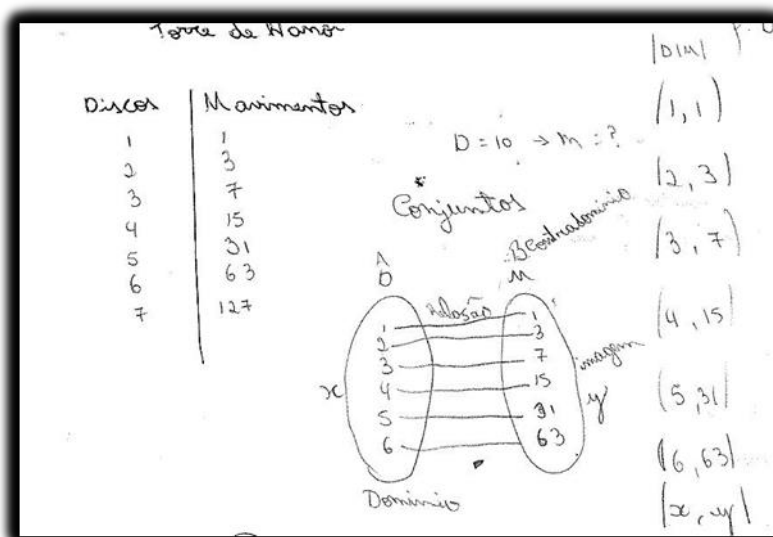 Torre de Hanoi
Discos Movimentos
1 1
2 3
3 7
4 15
5 31
6 63
7 127
D = 10 → M = ?
Conjuntos
A
D
B Contradominio
M
Relasão
1 1
2 3
3 7
4 15
5 31
6 63
x
y
imagem
Dominio
(D,M)
(1,1)
(2,3)
(3,7)
(4,15)
(5,31)
(6,63)
(x,y)